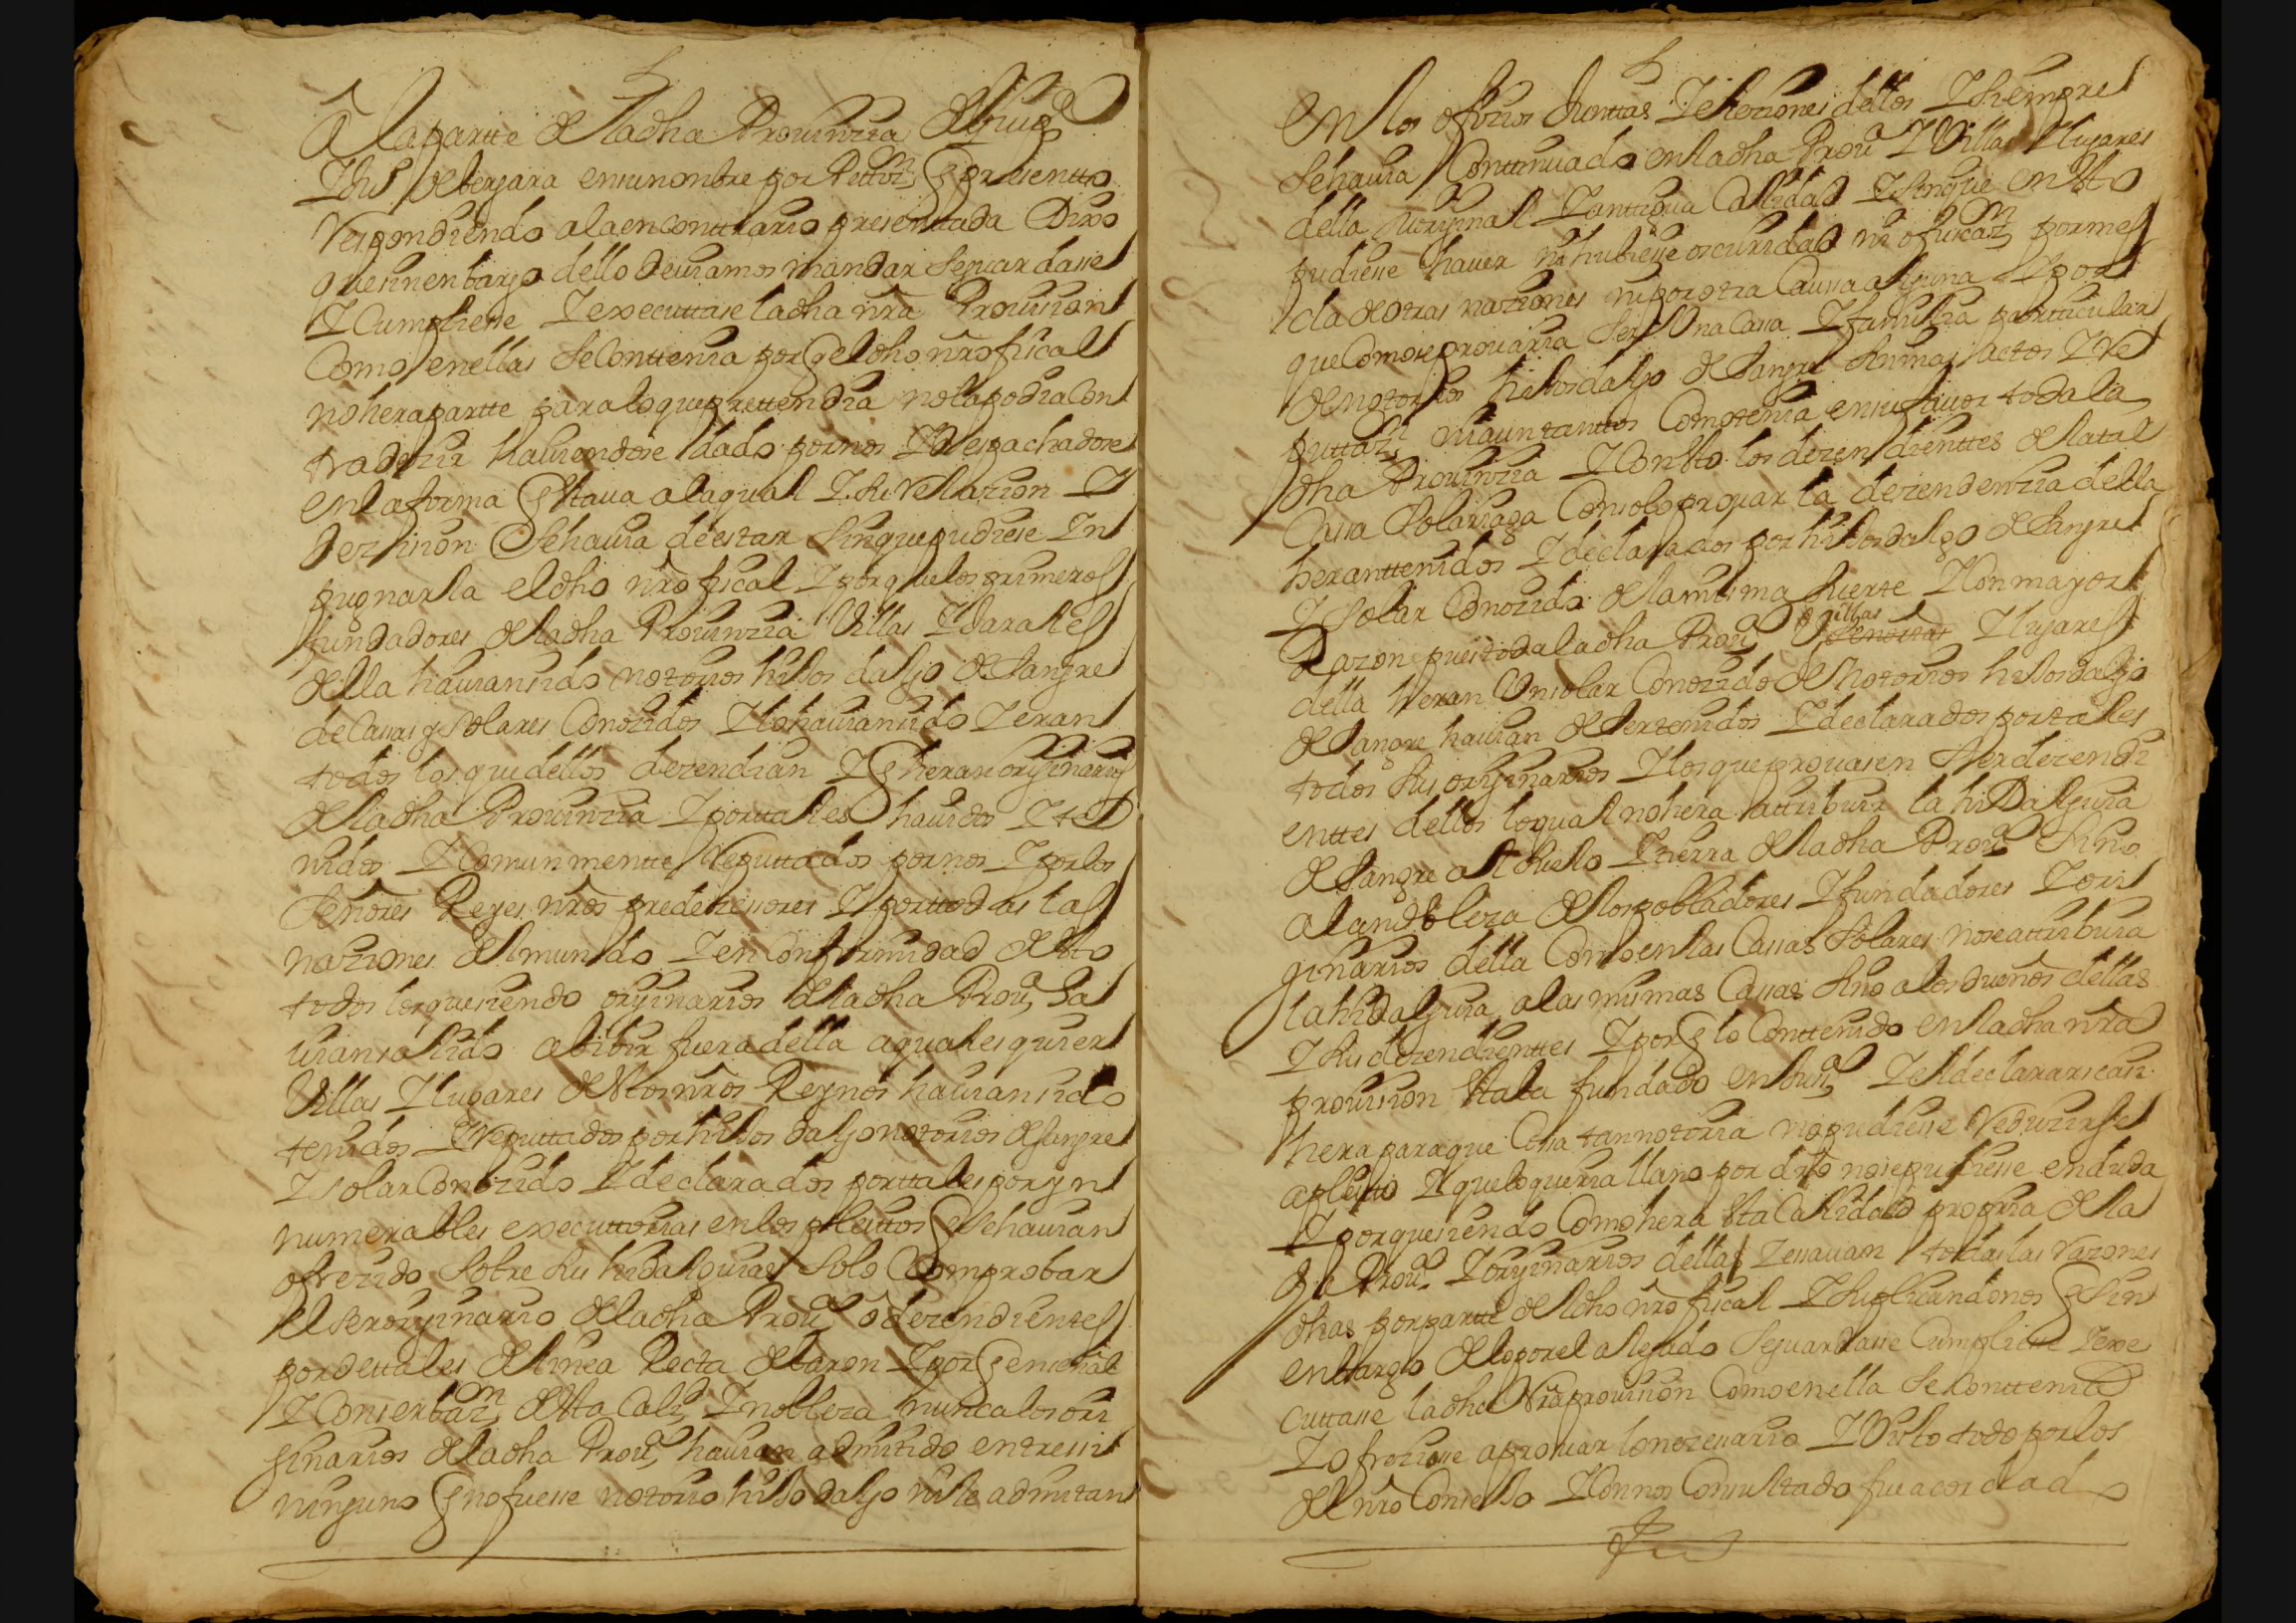 A la partte de la dha Prouinzia de Guipª
I Juº de bergara en su nonbre por Pettozⁿ q presentto
Respondiendo a la en conttrario presenttada Dixo
que sin enbargo dello deuiamos mandar se guardasse
I Cumpliesse I executtase la dha nra Prouision
Como en ellas se Conttenia porq el dho nro fiscal
no hera partte para lo que prettendia no la podia Con
tradezir hauiendose dado por nos I Despachadose
en la forma q estaua a la qual I su Relazion I
dezision Se hauia de estar sin que pudiese In
pugnarla el dho nro fiscal I porque los primeros
fundadores de la dha Prouinzia Villas I
della hauian sido notorios hijos dalgo de Sangre
de Casas y Solares Conozidos I lo hauian sido I eran
todos los que dellos dezendian I q heran oryinarios
de la dha Prouinzia I por tales hauidos I te
nidos I Comunmentte Reputtados por nos I por los
Señores Reyes nros predezessores I por ttodas las
naziones del mundo I en Conformidad desto
todos los que siendo oryinarios de la dha Prouª ha
uian salido a bibir fuera della a qualesquier
Villas I lugares destos nros Reynos hauian sido
tenidos I Reputtados por hijos dalgo notorios de Sangre
I solar Conozido I declarados por ttales por yn
numerables executtorias en los pleittos q se hauian
ofrezido Sobre su hidalguias Solo Com probar
el ser oryinario de la dha Prouª o dezendientes
por de ttales de linea Recta de baron I por q en señal
I Conserbazⁿ desta Calidª I nobleza nunca los ori
ginarios de la dha Prouª hauian admitido entre si
ninguno q no fuesse notorio hijo dalgo ni le admitan
En los ofizios Junttas I eleziones dellos I Siempre
Se hauia Conttinuado en la dha Prouª I Villas I lugares
della su oryinal I anttigua Calidad I Sin que en esto
pudiesse hauer ni hubiesse oscuridad ni ofuscazⁿ por mes
cla de otras naziones ni por otra Caussa alguna I por
que Como se prouaria Ser Una Cassa I familia particular
de notorios hijos dalgo de Sangre Sin mas actos I Re
puttazⁿ ni aun tanttos Como tenia en su fauor toda la
dha Prouinzia I Con esto los dezendienttes de la tal
Cassa Solariega Con solo prouar la dezendenzia della
heran ttenidos I declarados por hijos dalgo de Sangre
I solar Conozido de la misma suerte I Con mayor
Razon pues toda la dha Prouª Villas I lugares
della heran Un solar Conozido de Notorios hijos dalgo
de Sangre hauian de ser tenidos I declarados por tales
todos sus oryinarios I los que prouasen Ser dezendi
enttes dellos lo qual no hera attribuir la hidalguia
de Sangre al Suelo I tierra de la dha Prouª Sino
a la nobleza de los pobladores I fundadores I ori
ginarios della Como en las Casas Solares no se attribuia
la hidalguia a las mismas Casas Sino a los dueños dellas
I sus dezendienttes I por q lo Conttenido en la dha nra
prouision estaba fundado en Justª I el declarar
hera para que Cosa tan notoria no pudiesse Reduzirse
a pleitto I que lo que era llano por dro no se pusiesse en duda
I porque siendo Como hera esta Calidad propria de la
dha Prouª I oryinarios della Zessauan todas las Razones
dhas por partte del dho nro fiscal I Suplicandonos q Sin
enbargo de lo por el alegado Se guardasse Cumpliesse I exe
cuttasse la dha Nra prouision Como en ella Se Conttenia
I ofreziase a prouar lo nezessario I Visto todo por los
del nro Consejo I Con nos Consultado fue acordado